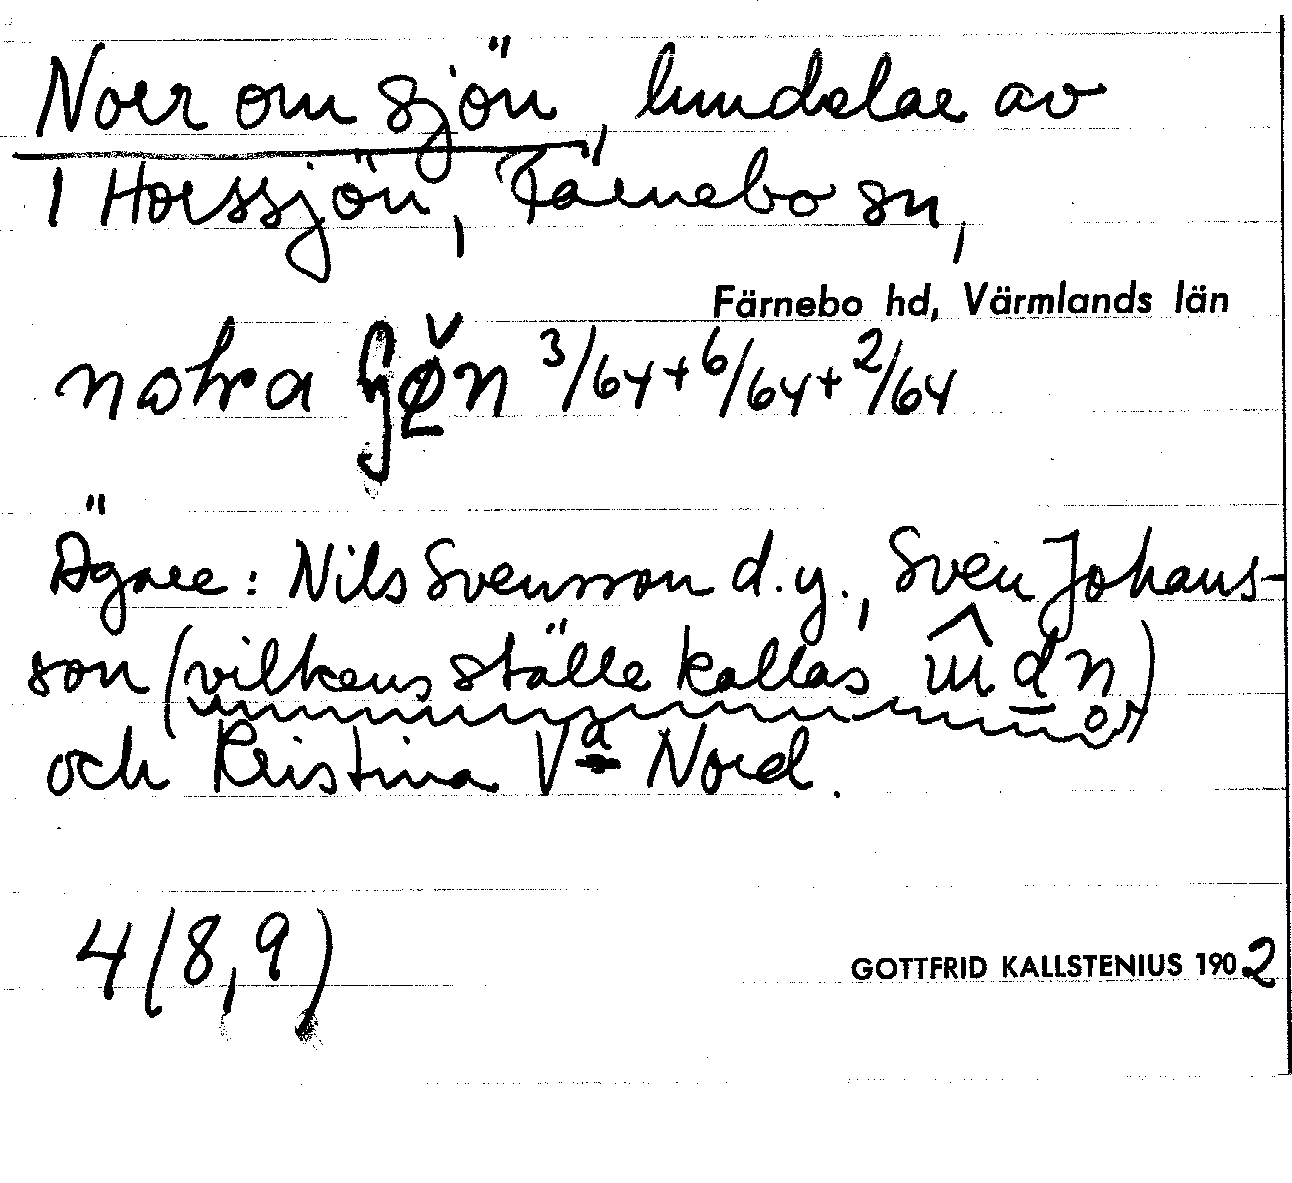 Norr om sjön, lundelar av
1 Horssjön, Färnebo sn,
Färnebo hd, Värmlands län
3/64 + 6/64 + 2/64
Ägare: Nils Svensson d.y., Sven Johans-
son (vilkens ställe kallas
och Kristina Va Nord.
4 (8,9)
GOTTFRID KALLSTENIUS 1902